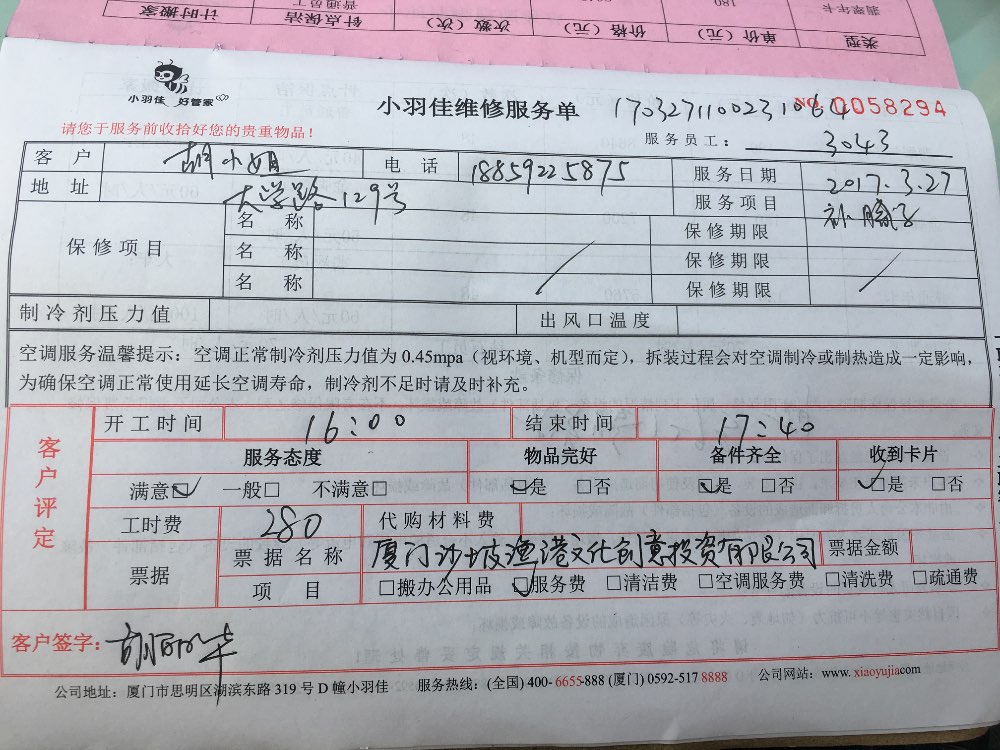 翡翠年卡 180 普通员工
类型 单价（元） 价格（元） 次数（次） 针点保洁 计时搬家
小羽佳 好管家
小羽佳维修服务单 17032711002310864 NO.0058294
请您于服务前收拾好您的贵重物品！ 服务员工： 3043
客户 胡小姐 电话 18859225875 服务日期 2017.3.27
地址 大学路129号 服务项目 补腻子
保修项目 名称 保修期限
名称 保修期限
名称 保修期限
制冷剂压力值 出风口温度
空调服务温馨提示：空调正常制冷剂压力值为 0.45mpa（视环境、机型而定），拆装过程会对空调制冷或制热造成一定影响，
为确保空调正常使用延长空调寿命，制冷剂不足时请及时补充。
客户评定 开工时间 16:00 结束时间 17:40
服务态度 物品完好 备件齐全 收到卡片
满意☑ 一般□ 不满意□ ☑是 □否 ☑是 □否 ☑是 □否
工时费 280 代购材料费
票据 票据名称 厦门沙坡渔港文化创意投资有限公司 票据金额
项目 □搬办公用品 ☑服务费 □清洁费 □空调服务费 □清洗费 □疏通费
客户签字： 胡丽华
公司地址：厦门市思明区湖滨东路 319 号 D 幢小羽佳 服务热线：(全国) 400-6655-888 (厦门) 0592-517 8888 公司网站：www.xiaoyujia.com